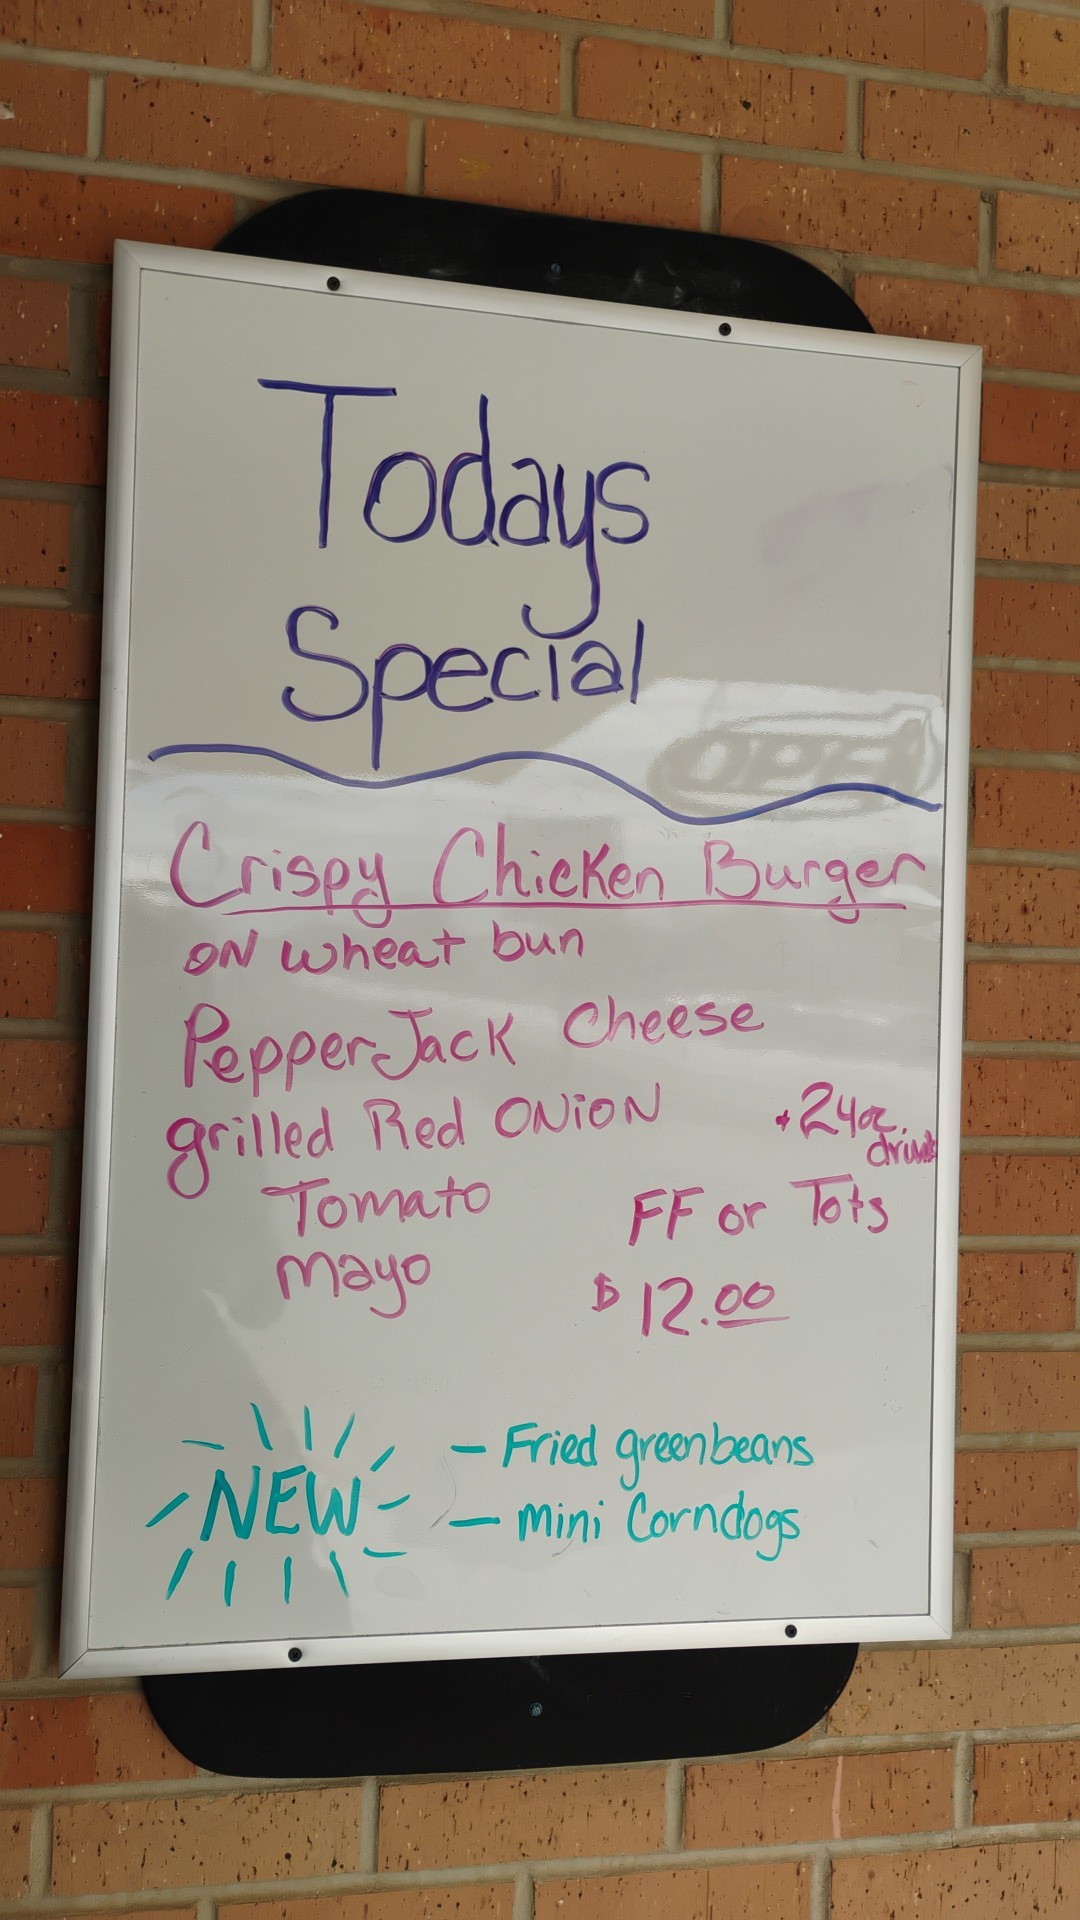 Todays
Special
OPEN
Crispy Chicken Burger
ON wheat bun
PepperJack Cheese
grilled Red ONiON
+ 24oz. drink
Tomato
FF or Tots
mayo
$12.00
NEW
- Fried greenbeans
- mini Corndogs